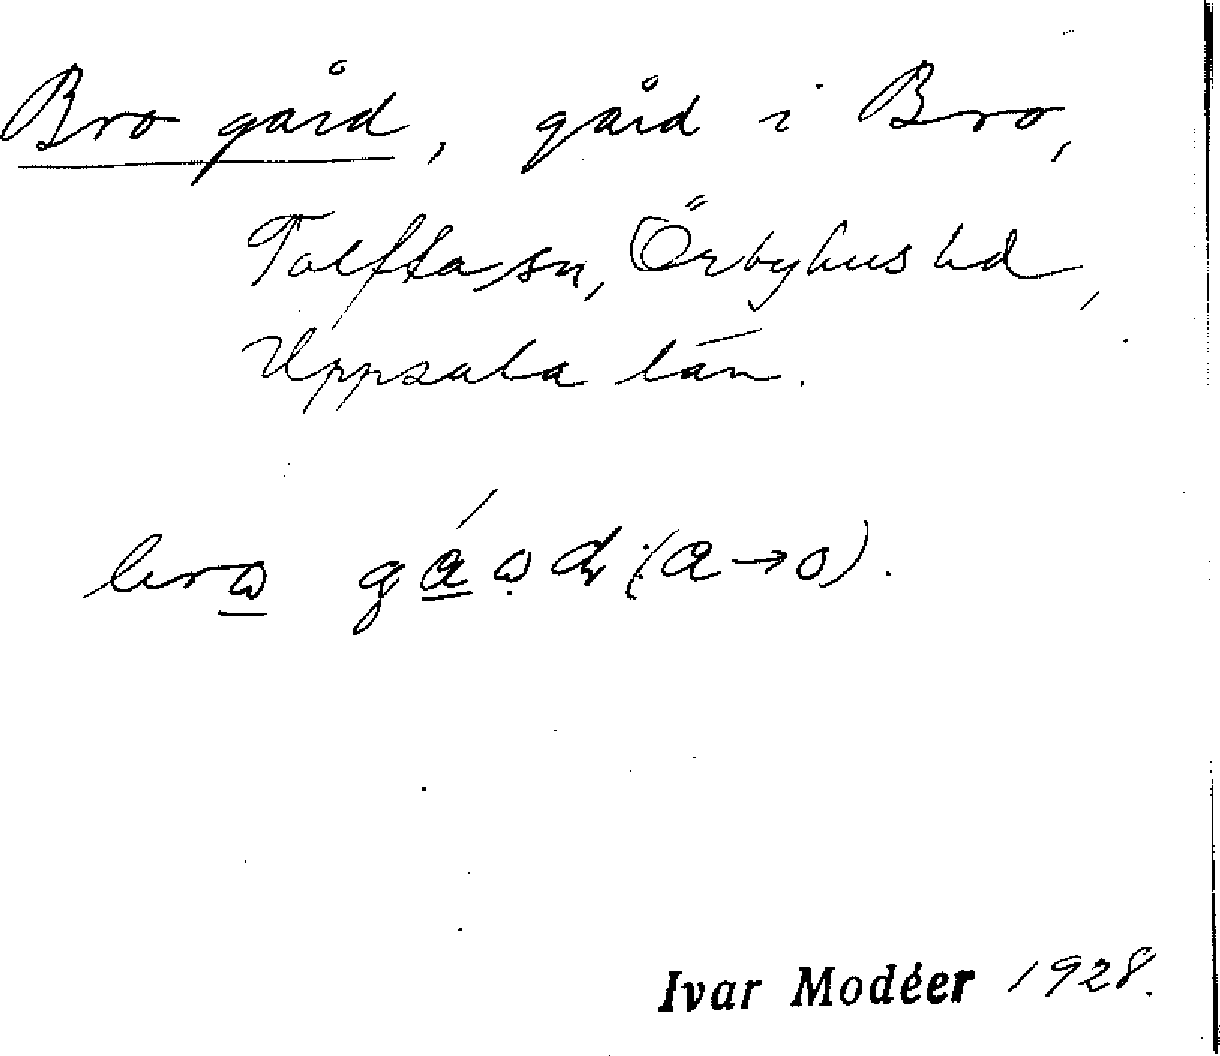 Bro gård, gård i Bro,
Tolfta sn, Örbyhus hd,
Uppsala län.
Ivar Modéer 1928.